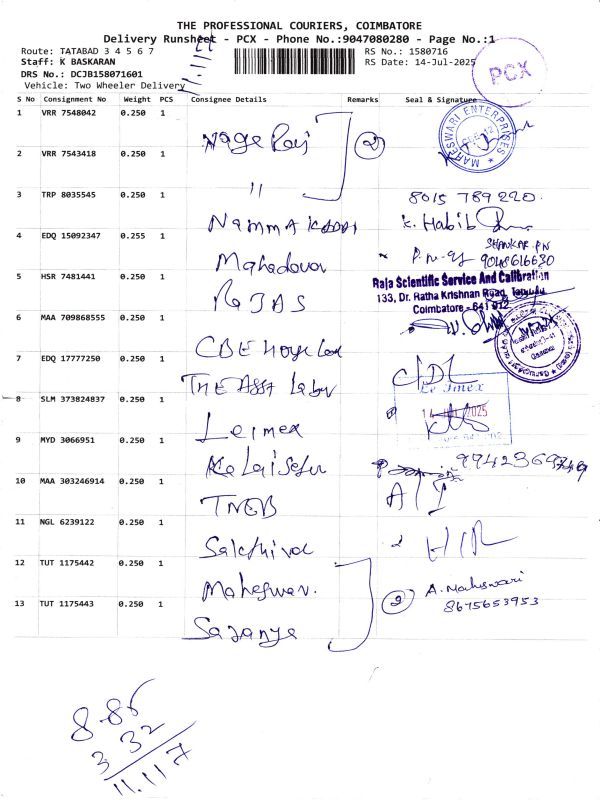 THE PROFESSIONAL COURIERS, COIMBATORE
Delivery Runsheet - PCX - Phone No.:9047080280 - Page No.:1
Route: TATABAD 3 4 5 6 7
RS No.: 1580716
Staff: K BASKARAN
RS Date: 14-Jul-2025
DRS No.: DCJB158071601
Vehicle: Two Wheeler Delivery
PCX
S No Consignment No Weight PCS Consignee Details Remarks Seal & Signature
1 VRR 7548042 0.250 1
MAHESWARI ENTERPRISES
Nage Raj 2
2 VRR 7543418 0.250 1
"
3 TRP 8035545 0.250 1
8015 789 220
Namma K. Habib
4 EDQ 15092347 0.255 1
SHANKAR PN
9048616630
Mahadevan
5 HSR 7481441 0.250 1
Raja Scientific Service And Calibration
133, Dr. Ratha Krishnan Road, Tatabad
Coimbatore - 641 012
6 MAA 709868555 0.250 1
CBE
7 EDQ 17777250 0.250 1
THE ASST Labor
8 SLM 373824837 0.250 1
Le Imex
14 2025
Leimex
9 MYD 3066951 0.250 1
Kalaiselvi 9942369749
10 MAA 303246914 0.250 1
TNEB
11 NGL 6239122 0.250 1
Sakthivel
12 TUT 1175442 0.250 1
Maheswari. 2 A. Maheswari
8675653953
13 TUT 1175443 0.250 1
Saranya
8.85
3 32
11.117